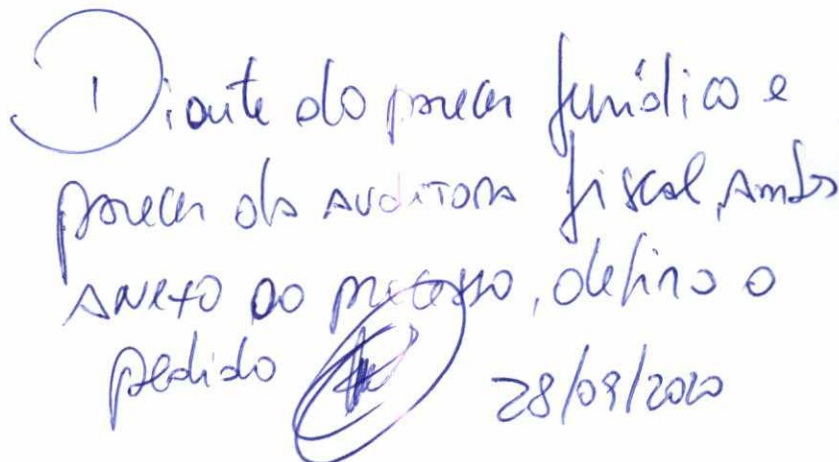 Diante do parecer jurídico e
parecer da auditora fiscal, ambos
anexo ao processo, defiro o
pedido
28/09/2020